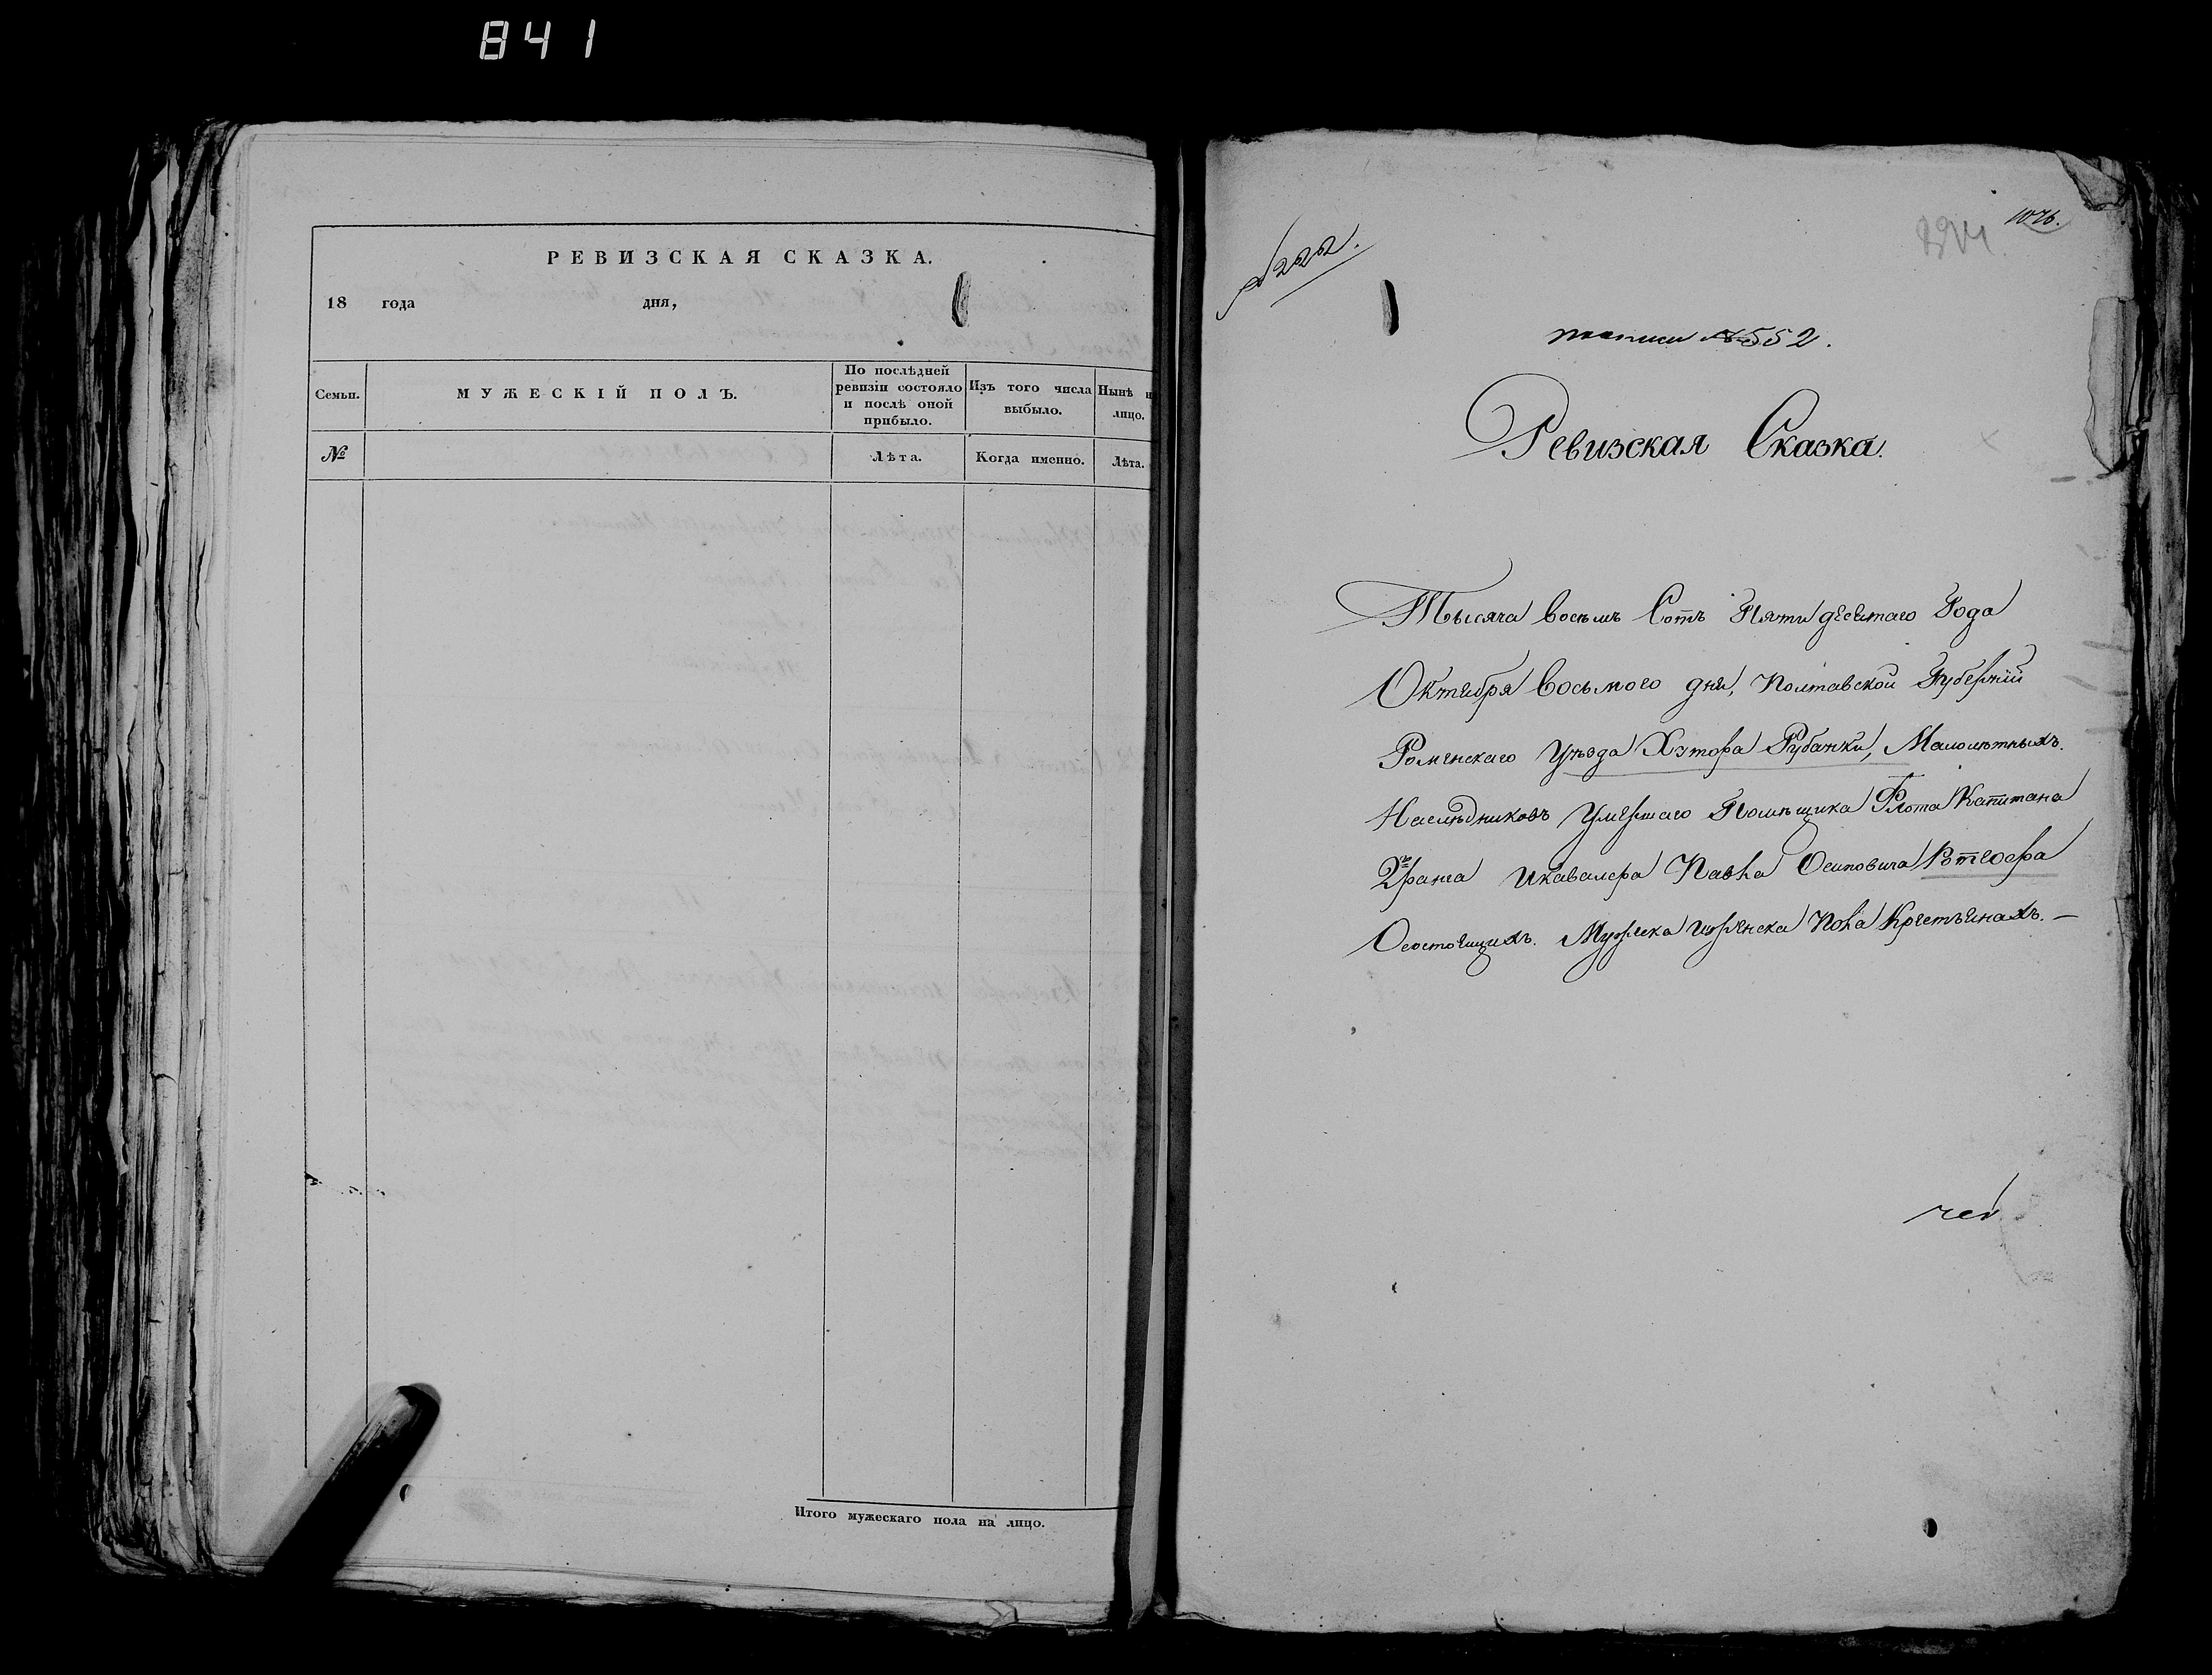 841
РЕВИЗСКАЯ СКАЗКА.
18 года дня,
Семьи.
МУЖЕСКІЙ ПОЛЪ.
По послѣдней
ревизіи состояло
и послѣ оной
прибыло.
Изъ того числа
выбыло.
Нынѣ н
лицо.
№
Лѣта.
Когда именно.
Лѣта.
Итого мужескаго пола на лицо.
1076.
№ 222.
№ 552.
Ревизская Сказка.
Тысяча Восемь Сотъ Пяти десятаго Года
Октября Восьмого дня, Полтавской Губерніи
Роменскаго Уѣзда Хутора Рубанки, Малолѣтныхъ.
Наслѣдниковъ Умершаго Помѣщика Флота Капитана
2го ранга Икавалера Павла Осиповича Ротгофа
Осостоящихъ. Мужска Иженска Пола Крестьянахъ. —